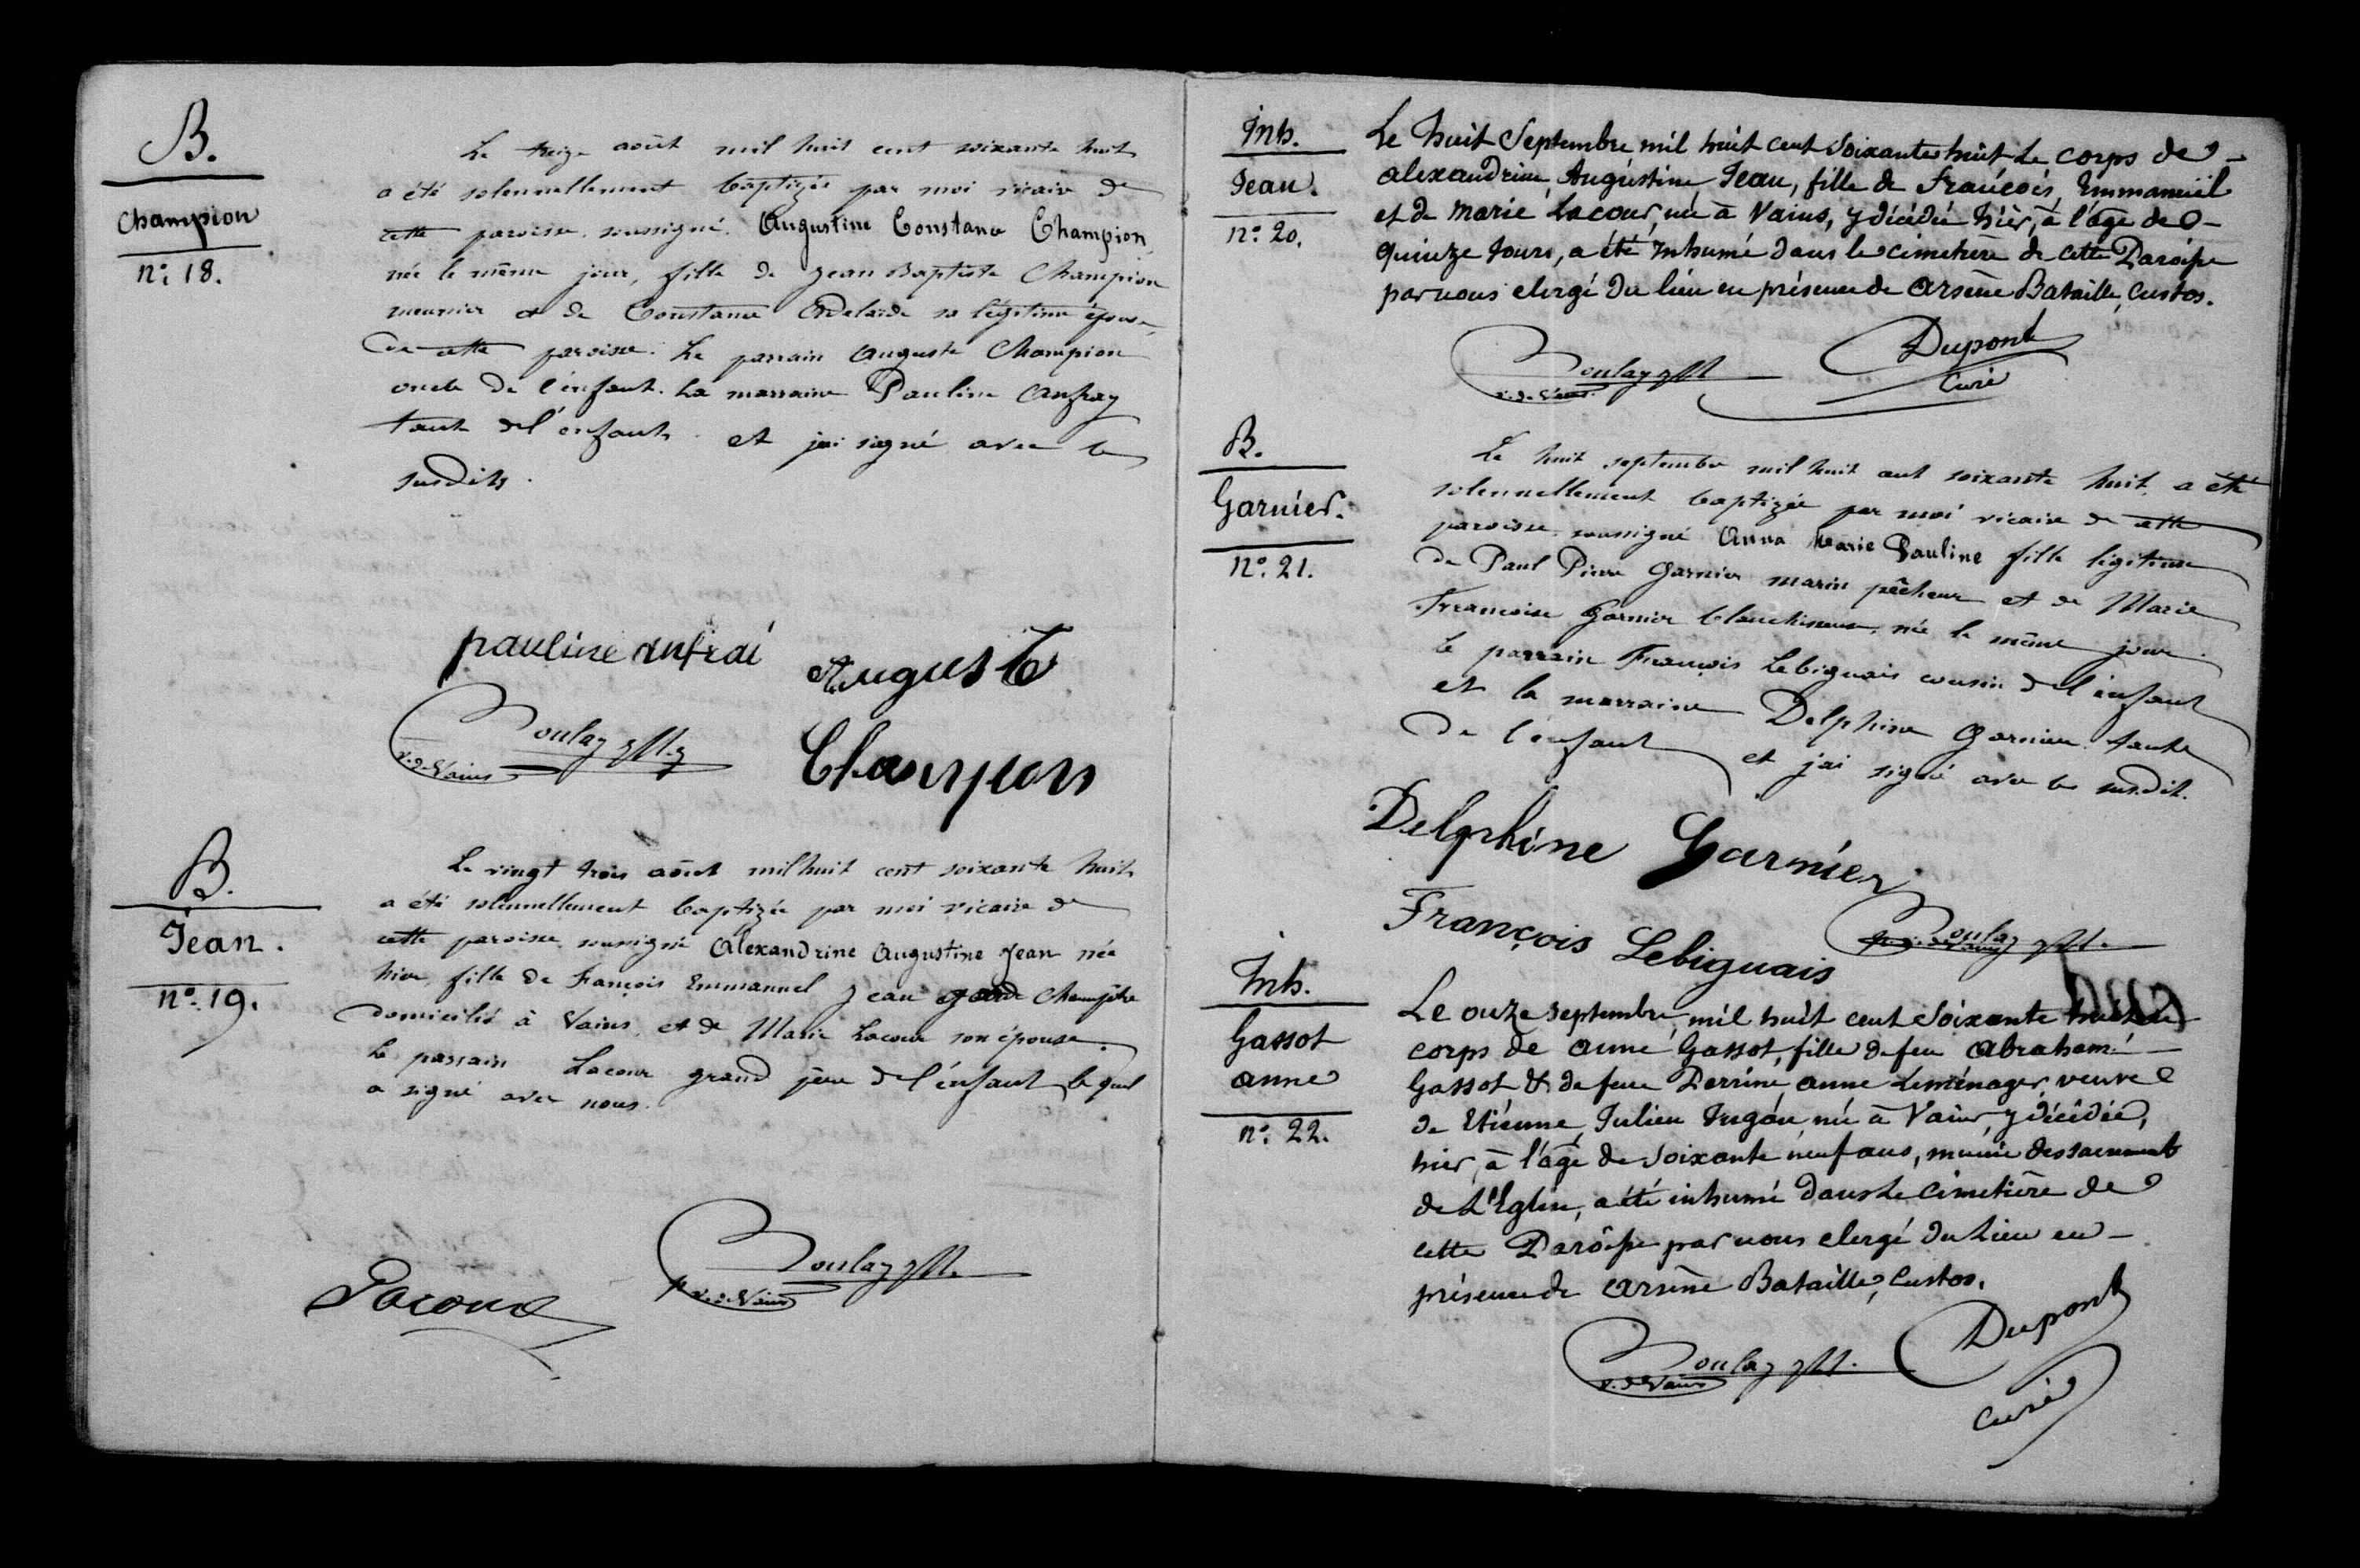 B.
Champion
n° 18.
Le treize août mil huit cent soixante huit
a été solennellement baptizée par moi vicaire de
cette paroisse soussigné. Augustine Constance Champion,
née le même jour, fille de Jean Baptiste Champion
meunier et de Constance Adelaïde sa légitime épouse,
de cette paroisse. Le parrain Auguste Champion
oncle de l'enfant. La marraine Pauline Anfray
tante de l'enfant. et j'ai signé avec les
susdits.
pauline anfrai
August
Champion
Boulay
v. de Vains
B.
Jean.
n° 19.
Le vingt trois août mil huit cent soixante huit
a été solennellement baptizée par moi vicaire de
cette paroisse soussigné Alexandrine Augustine Jean née
hier, fille de François Emmanuel Jean garde champêtre
domicilié à Vains, et de Marie Lacour son épouse.
Le parrain Lacour grand père de l'enfant lequel
a signé avec nous.
Lacour
Boulay
v. de Vains
Inh.
Jean.
n° 20.
Le huit Septembre mil huit cent Soixante huit Le corps de
alexandrine, Augustine Jean, fille de François, Emmanuël
et de Marie Lacour, née à Vains, y décédée hièr, à l'âge de
quinze Jours, a été Inhumé dans le cimetière de cette Paroisse
par nous clergé du lieu en présence de Arsène Bataille, Custos.
Boulay
v. de Vains
Dupont
Curé
B.
Garnier.
n° 21.
Le huit septembre mil huit cent soixante huit, a été
solennellement baptizée par moi vicaire de cette
paroisse soussigné Anna Marie Pauline fille légitime
de Paul Pierre Garnier marin pêcheur et de Marie
Françoise Garnier blanchisseuse, née le même jour.
le parrain François Lebiguais cousin de l'enfant
et la marraine Delphine Garnier tante
de l'enfant et j'ai signé avec les susdit.
Delphine Garnier
François Lebiguais
Boulay
Inh.
Gassot
anne
n° 22.
Le onze septembre, mil huit cent Soixante huit Le
corps de anne Gassot, fille de feu Abraham
Gassot & de feue Perrine, anne Leménager, veuve
de Etienne, Julien née à Vains, y décédée,
hier, à l'âge de Soixante neuf ans, munie des sacrements
de L'Eglise, a été inhumé dans Le Cimetière de
cette Paroisse par nous clergé du Lieu en
présence de Arsène Bataille, Custos.
Boulay
v. de Vains
Dupont
Curé